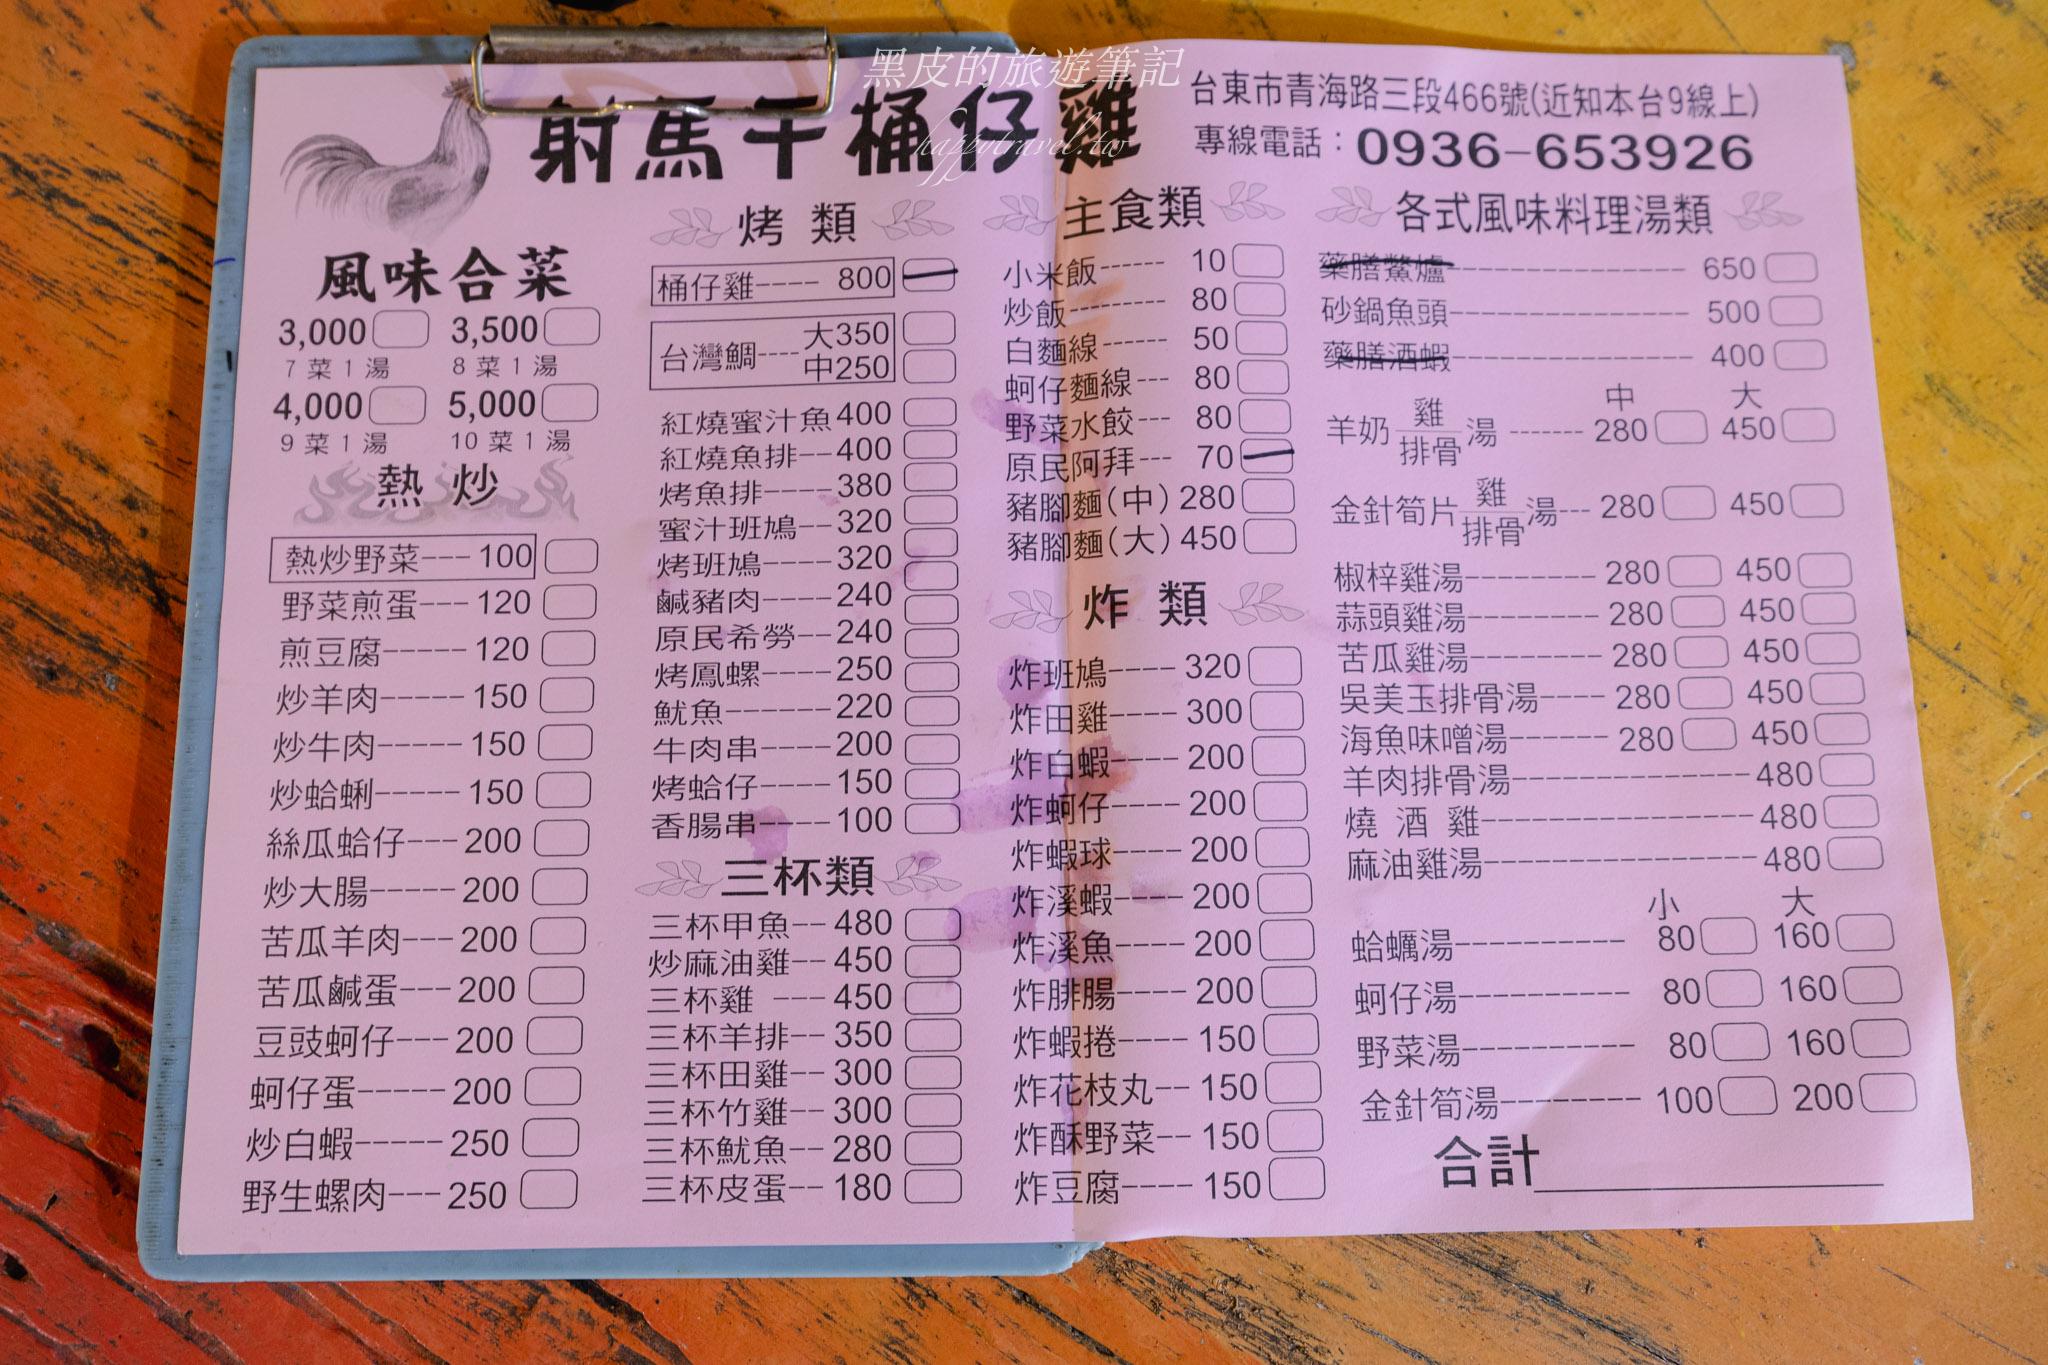 黑皮的旅遊筆記
happytravel.tw
射馬干桶仔雞
台東市青海路三段466號(近知本台9線上)
專線電話：0936-653926
風味合菜
3,000 3,500
7菜1湯 8菜1湯
4,000 5,000
9菜1湯 10菜1湯
熱炒
熱炒野菜---100
野菜煎蛋---120
煎豆腐-----120
炒羊肉-----150
炒牛肉-----150
炒蛤蜊-----150
絲瓜蛤仔---200
炒大腸-----200
苦瓜羊肉---200
苦瓜鹹蛋---200
豆豉蚵仔---200
蚵仔蛋-----200
炒白蝦-----250
野生螺肉---250
烤類
桶仔雞----800
台灣鯛----大350
中250
紅燒蜜汁魚400
紅燒魚排--400
烤魚排----380
蜜汁班鳩--320
烤班鳩----320
鹹豬肉----240
原民希勞--240
烤鳳螺----250
魷魚------220
牛肉串----200
烤蛤仔----150
香腸串----100
三杯類
三杯甲魚--480
炒麻油雞--450
三杯雞 ---450
三杯羊排--350
三杯田雞--300
三杯竹雞--300
三杯魷魚--280
三杯皮蛋--180
主食類
小米飯------10
炒飯--------80
白麵線------50
蚵仔麵線---80
野菜水餃---80
原民阿拜---70
豬腳麵(中)280
豬腳麵(大)450
炸類
炸班鳩----320
炸田雞----300
炸白蝦----200
炸蚵仔----200
炸蝦球----200
炸溪蝦----200
炸溪魚----200
炸腓腸----200
炸蝦捲----150
炸花枝丸--150
炸酥野菜--150
炸豆腐----150
各式風味料理湯類
藥膳鱉爐----------------650
砂鍋魚頭----------------500
藥膳酒蝦----------------400
中 大
羊奶雞/排骨湯 ------- 280 450
金針筍片雞/排骨湯--- 280 450
椒梓雞湯--------280 450
蒜頭雞湯--------280 450
苦瓜雞湯--------280 450
吳美玉排骨湯----280 450
海魚味噌湯------280 450
羊肉排骨湯----------------480
燒酒雞------------------480
麻油雞湯------------------480
小 大
蛤蠣湯----------80 160
蚵仔湯----------80 160
野菜湯----------80 160
金針筍湯--------100 200
合計